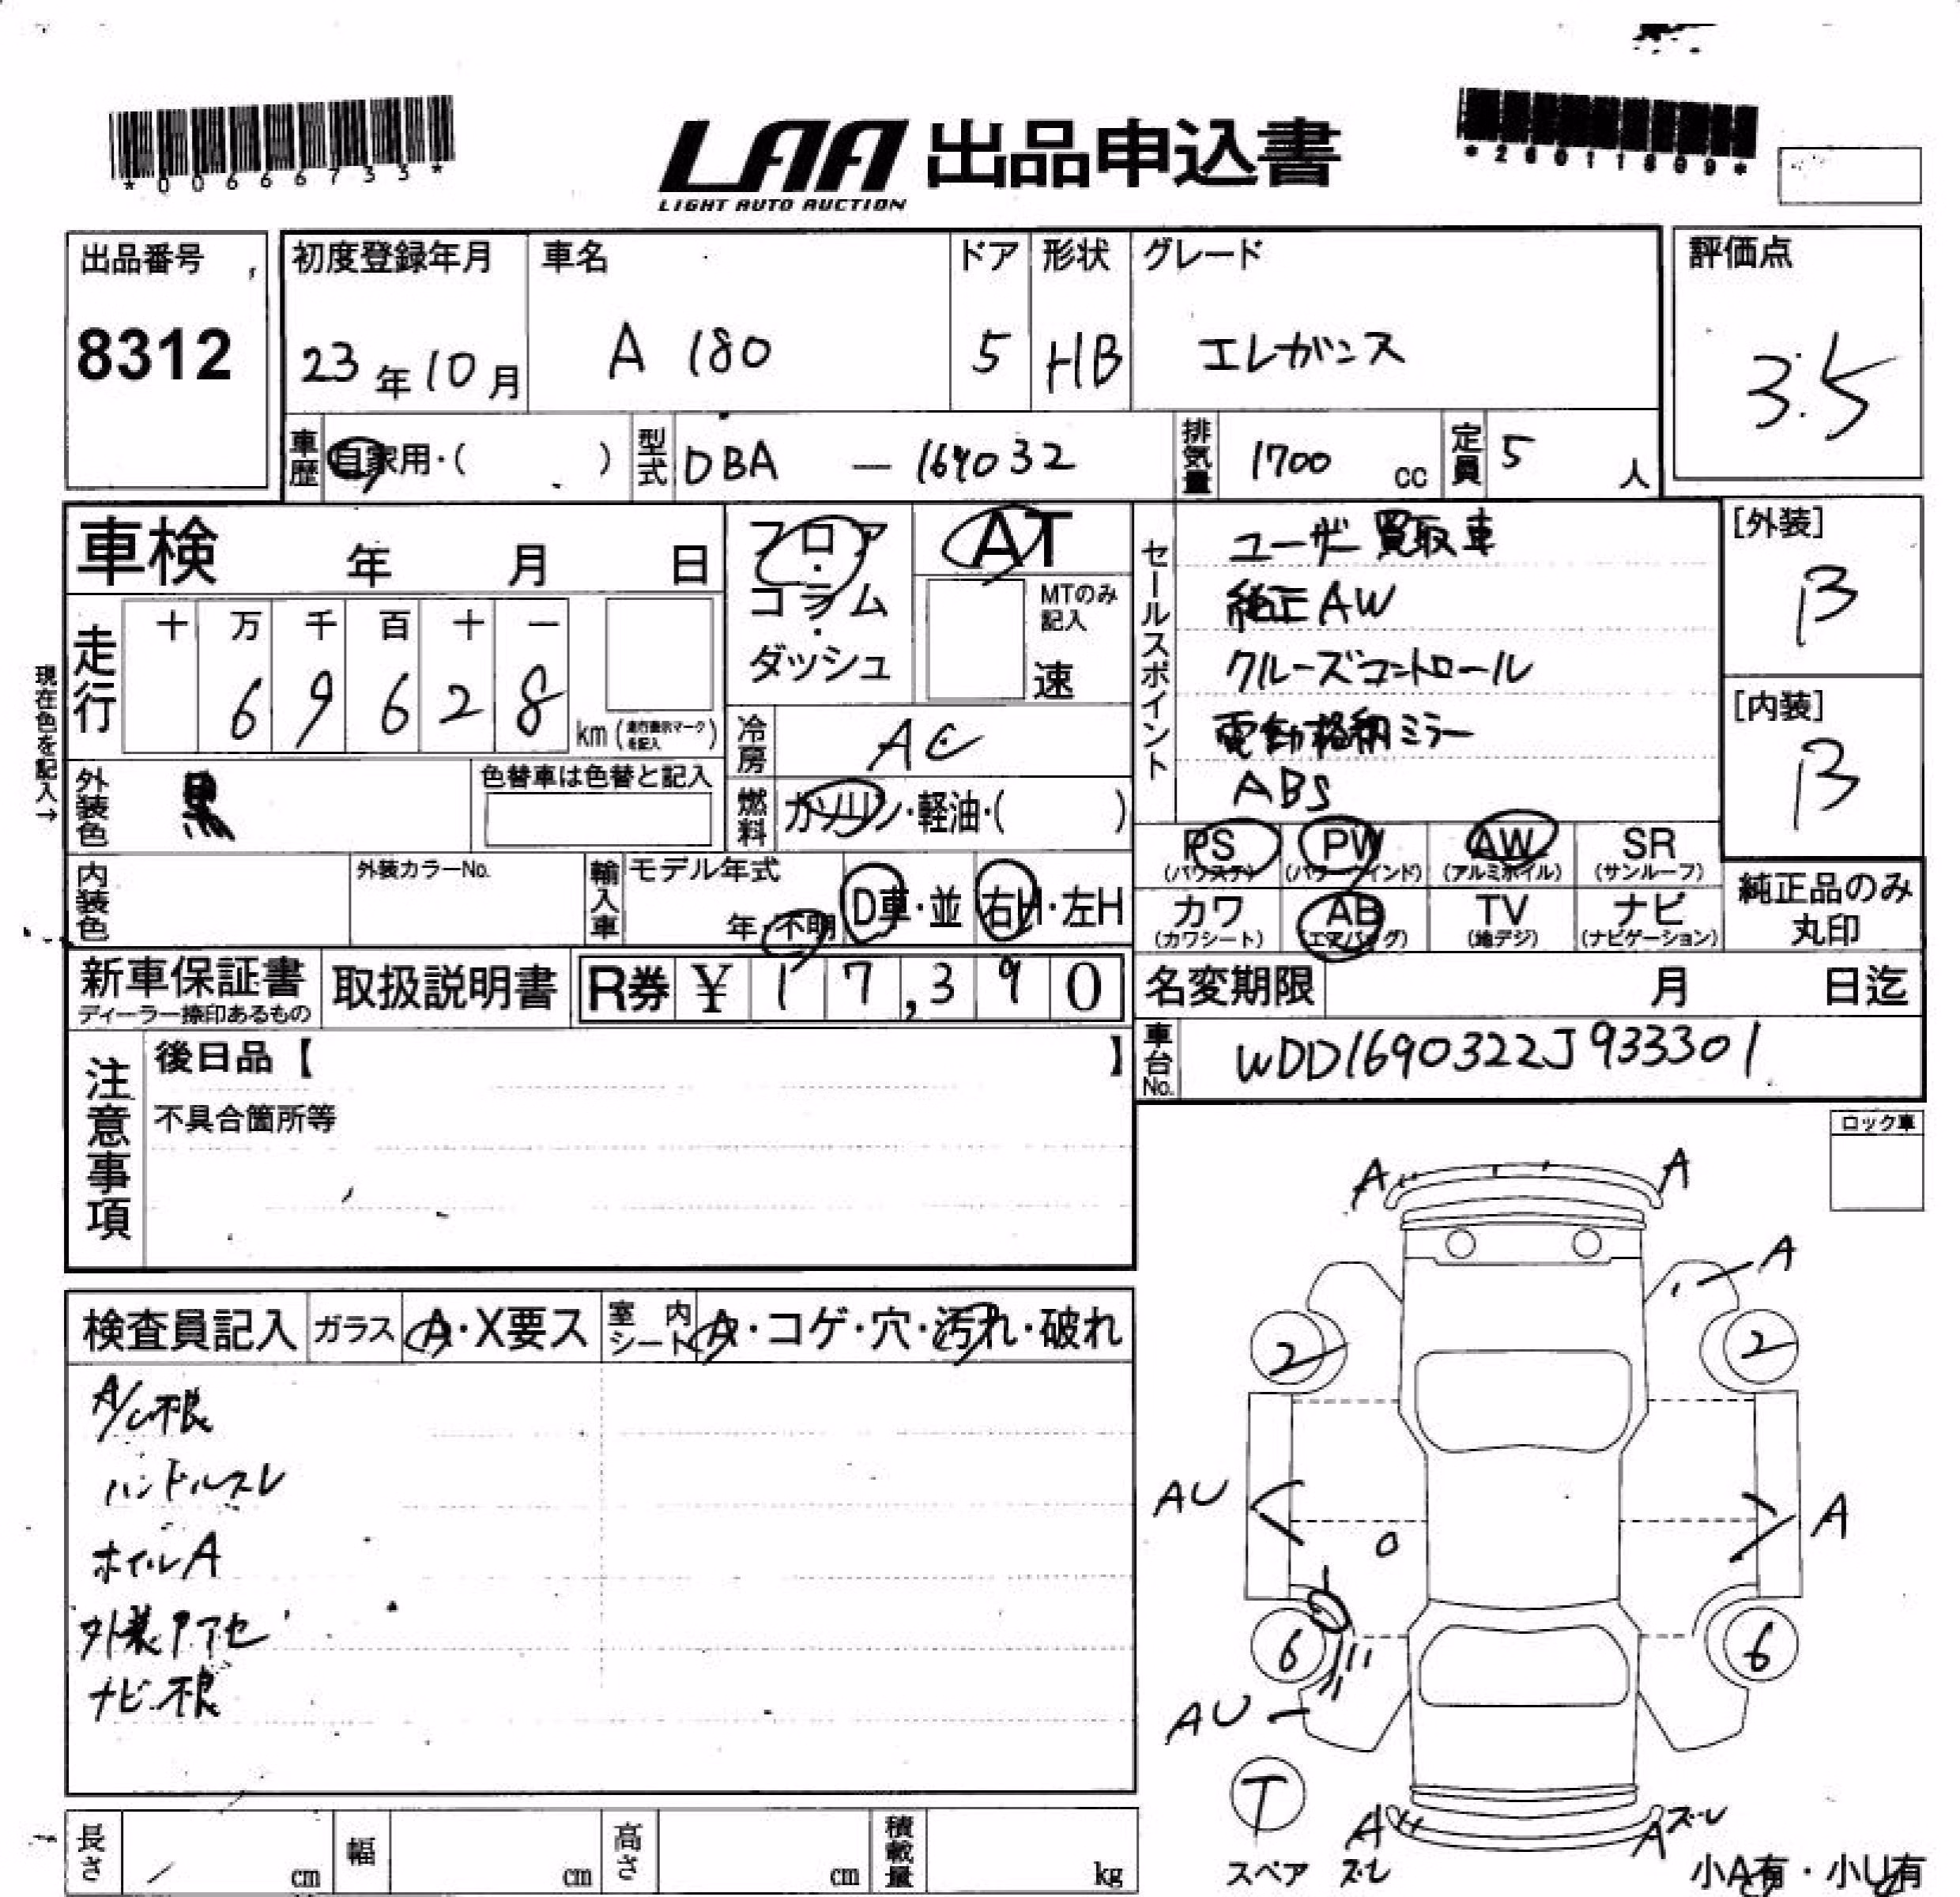 *00666733*
LAA 出品申込書
LIGHT AUTO AUCTION
*26011809*
出品番号
8312
初度登録年月
23年10月
車名
A 180
ドア
5
形状
HB
グレード
エレガンス
評価点
3.5
車歴
自家用・( )
型式
DBA — 169032
排気量
1700 cc
定員
5 人
車検 年 月 日
フロア・コラム・ダッシュ
AT
MTのみ記入
速
セールスポイント
ユーザー買取車
純正AW
クルーズコントロール
電動格納ミラー
ABS
[外装]
B
[内装]
B
現在色を記入→
走行
十 万 千 百 十 一
6 9 6 2 8
km (走行表示マークを記入)
冷房
AC
外装色
黒
色替車は色替と記入
燃料
ガソリン・軽油・( )
PS
(パワステ)
PW
(パワーウインド)
AW
(アルミホイル)
SR
(サンルーフ)
内装色
外装カラーNo.
輸入車
モデル年式
年・不明
D車・並
右H・左H
カワ
(カワシート)
AB
(エアバッグ)
TV
(地デジ)
ナビ
(ナビゲーション)
純正品のみ
丸印
新車保証書
ディーラー捺印あるもの
取扱説明書
R券 ¥ 17,390
名変期限 月 日迄
注意事項
後日品【 】
不具合箇所等
車台No.
WDD1690322J933301
ロック車
検査員記入
ガラス
A・X要ス
室内シート
A・コゲ・穴・汚れ・破れ
A/C不良
ハンドルスレ
ホイルA
外装アセ
ナビ不良
A A
A
2 2
AU A
6 6
AU
T
スペア
A ズレ
A ズレ
小A有・小U有
長さ cm
幅 cm
高さ cm
積載量 kg